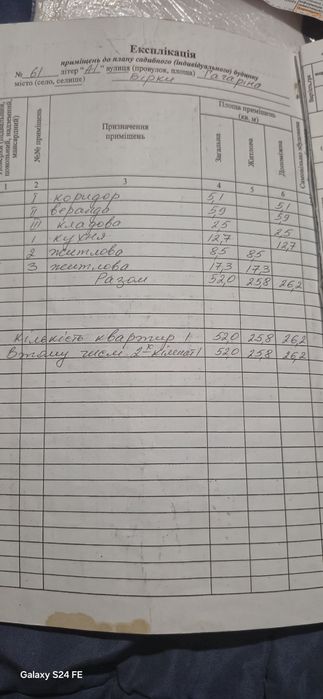 Експлікація
приміщень до плану садибного (індивідуального) будинку
№ 61 літер "А1" вулиця (провулок, площа) Гагаріна
місто (село, селище) Бірки
Поверхи (підвальний, цокольний, надземний, мансардний)
№№ приміщень
Призначення приміщень
Площа приміщень (кв. м)
Загальна
Житлова
Допоміжна
Самовільно збудована
1 2 3 4 5 6
I коридор 5,1 5,1
II веранда 5,9 5,9
III кладова 2,5 2,5
1 кухня 12,7 12,7
2 житлова 8,5 8,5
3 житлова 17,3 17,3
Разом 52,0 25,8 26,2
Кількість квартир 1 52,0 25,8 26,2
В тому числі 2х кімнат 1 52,0 25,8 26,2
Galaxy S24 FE